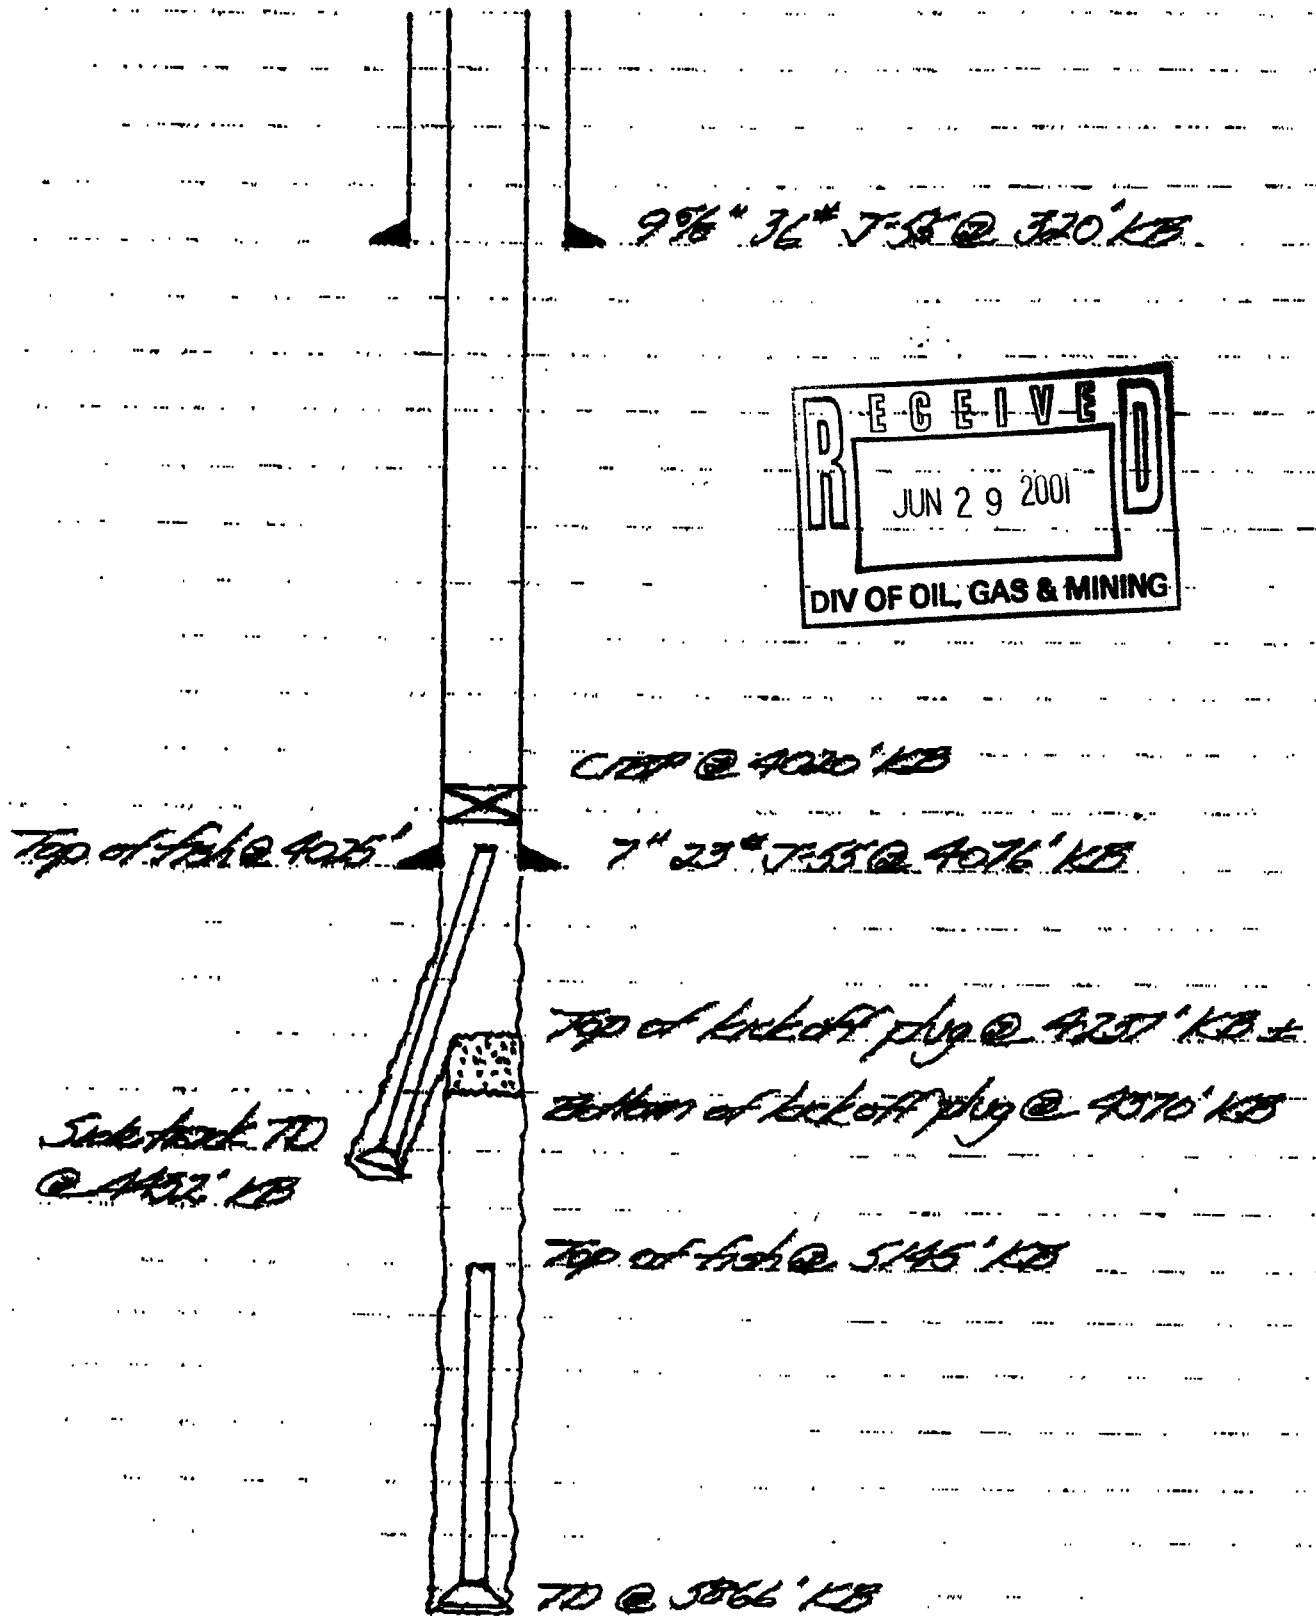 9 5/8" 36# J-55 @ 320' KB
RECEIVED
JUN 29 2001
DIV OF OIL, GAS & MINING
CIBP @ 4020' KB
Top of fish @ 4025'
7" 23# J-55 @ 4076' KB
Top of kickoff plug @ 4237' KB ±
Bottom of kickoff plug @ 4370' KB
Sidetrack TD
@ 4432' KB
Top of fish @ 5145' KB
TD @ 5866' KB